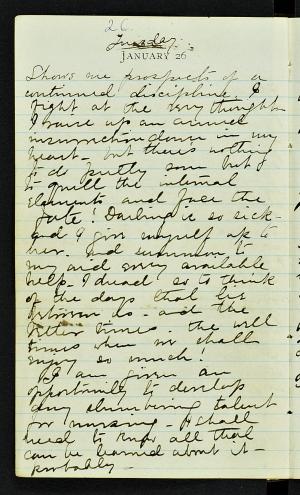 26.
Tuesday.
JANUARY 26
Shows me prospects of a
continued discipline. I
fight at the very thought
I raise up an armed
insurrection down in my
heart - but there's nothing
to do pretty soon but
to quell the internal
elements and face the
fate! Darling is so sick -
and I give myself up to
her. And summon to
my aid every available
help. I dread so to think
of the days that lie
between us - and the
better times. the well
times when we shall
enjoy so much!
I am given an
opportunity to develop
any slumbering talent
for nursing - I shall
need to know all that
can be learned about it -
probably -